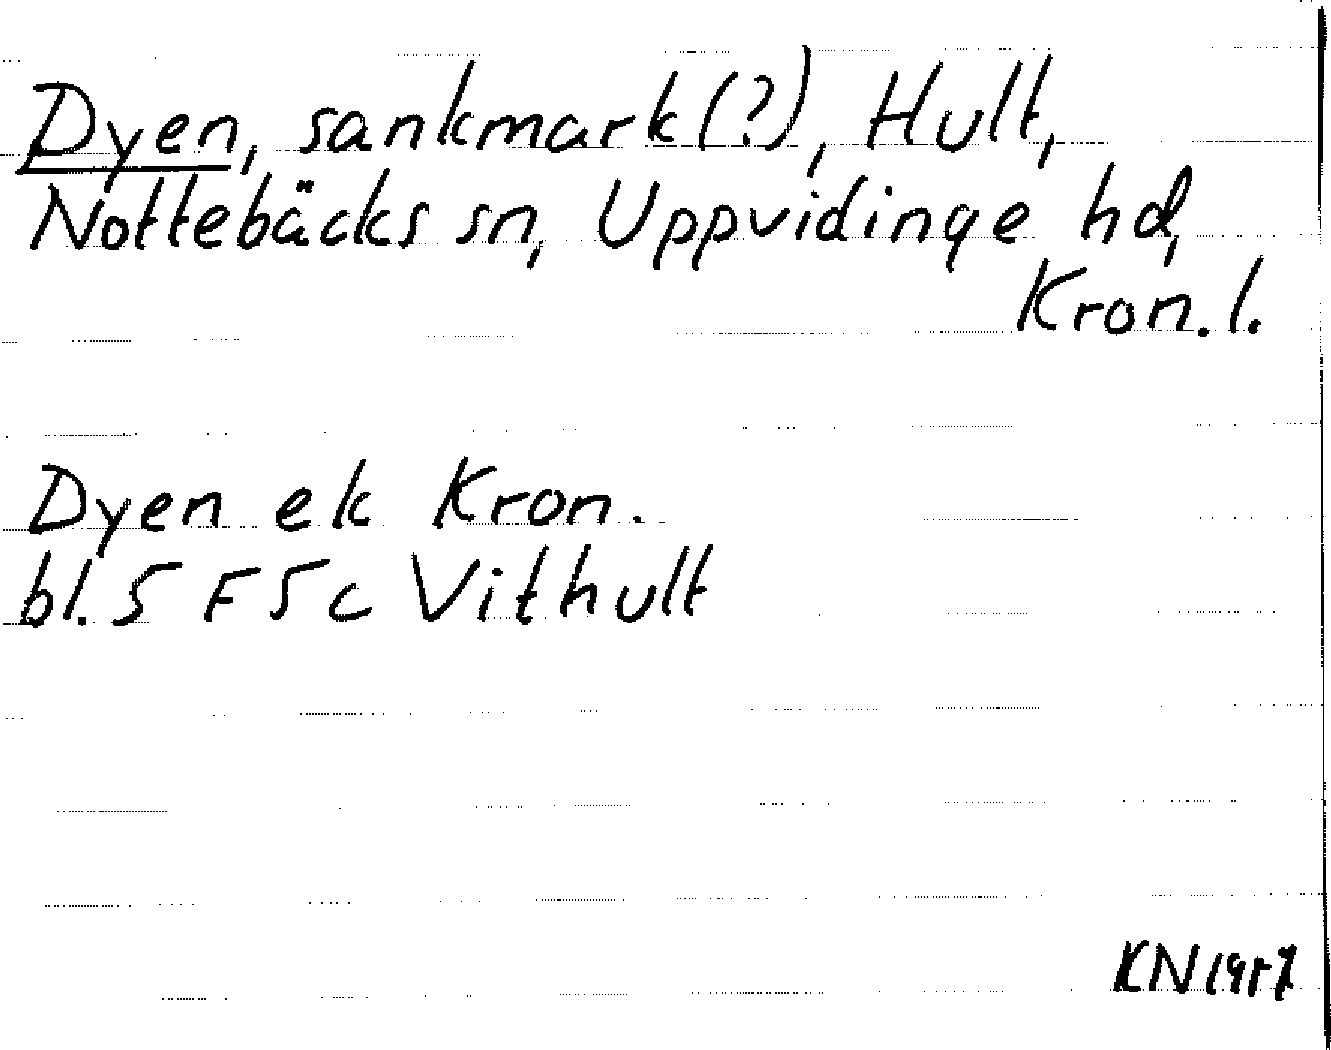 Dyen, sankmark(?), Hult,
Nottebäcks sn, Uppvidinge hd,
Kron. l.
Dyen ek Kron.
bl. 5 F 5 c Vithult
KN